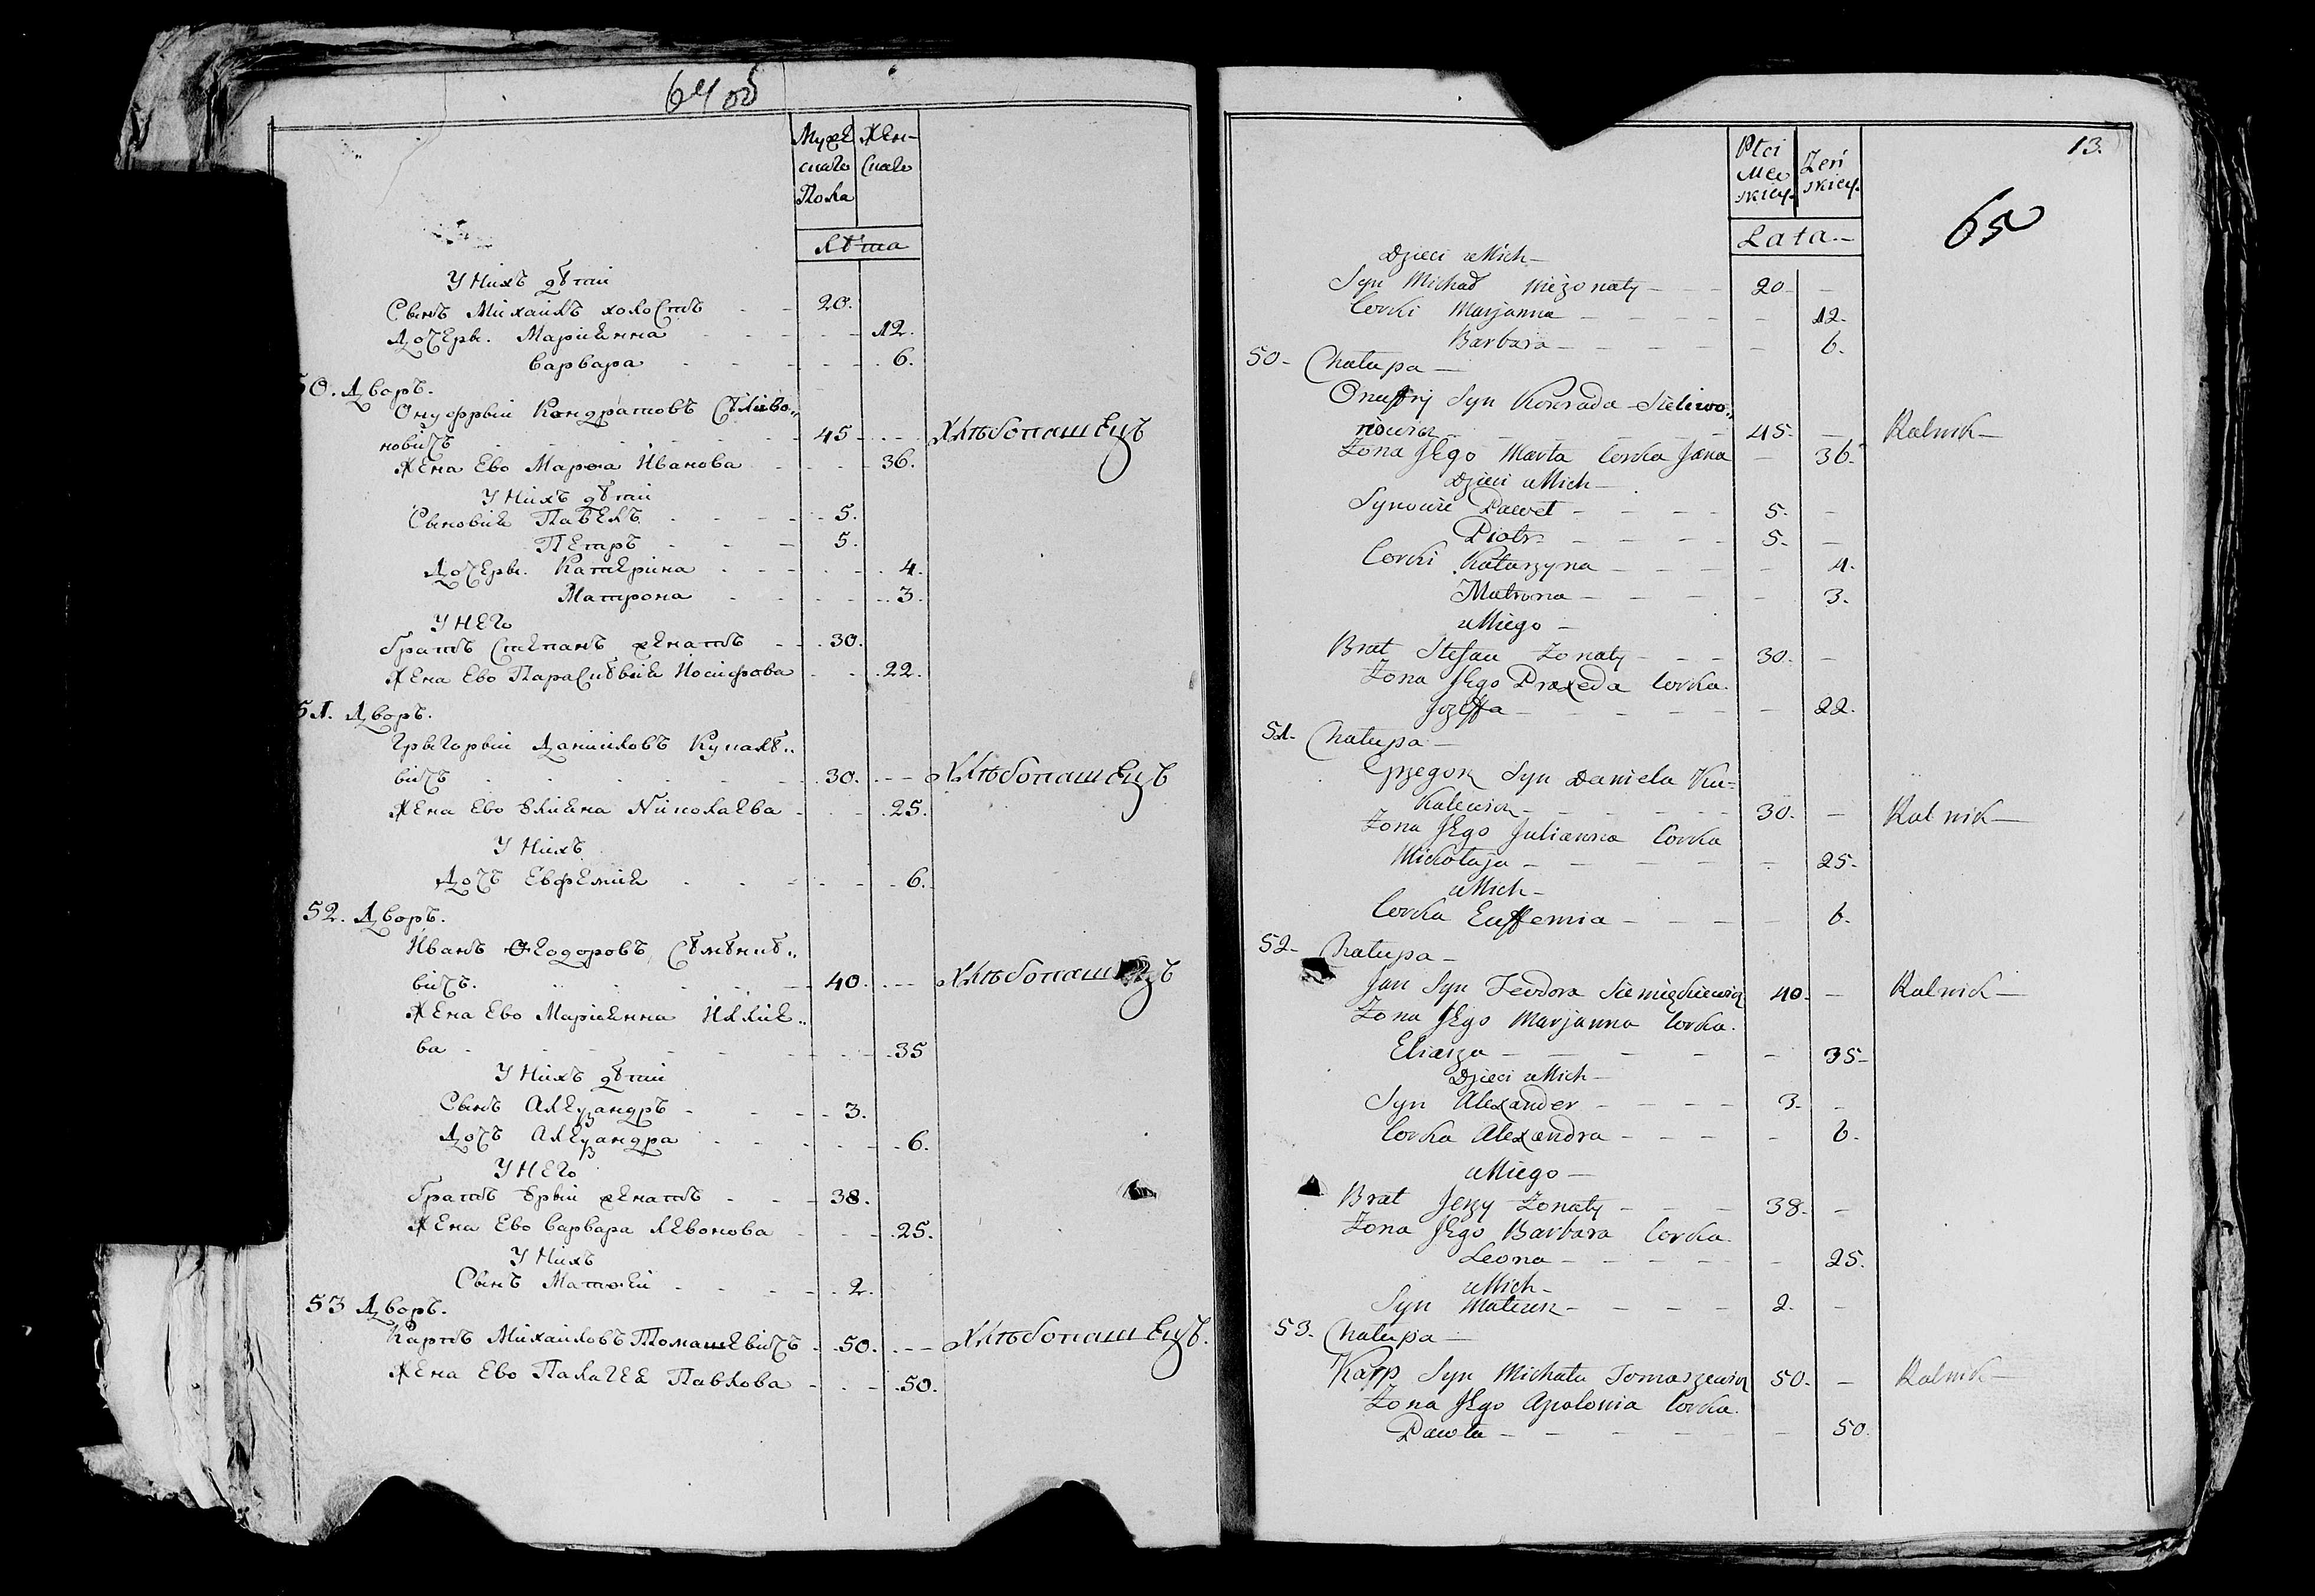 64 об
Мужескаго Пола
Женскаго
Лѣта
У нихъ дѣтӣ
Сынъ Михаилъ холостъ - - 20.
Дочеры. Марианна - - - 12.
Варвара - - - 6.
50. Дворъ.
Онуфрый Кондратовъ Сѣливо„
новичъ - - - 45 - - - Хлѣбопашецъ
Жена Ево Марѳа Иванова - - - 36.
У нихъ дѣтӣ
Сыновия Павелъ - - - 5.
Петръ - - - 5.
Дочеры. Катерина - - - 4.
Матрона - - - 3.
У него
братъ Степанъ женатъ - - 30.
Жена Ево Парасковия Иосифова - - 22.
51. Дворъ.
Грыгорый Даниловъ Кукалѣ„
вичъ - - - 30. - - - Хлѣбопашецъ
Жена Ево Улиана Николаева - - - 25.
У нихъ
Дочъ Евфемия - - - 6.
52. Дворъ.
Иванъ Ѳеодоровъ
вичъ. - - - 40. - - - Хлѣбопашецъ
Жена Ево Марианна Илие„
ва - - - 35
У нихъ дѣтӣ
Сынъ Алеѯандръ - - - 3.
Дочъ Алеѯандра - - - 6.
У него
братъ Юрый женатъ - - - 38.
Жена Ево Варвара Левонова - - - 25.
У нихъ
Сынъ Матѳей - - - 2.
53 Дворъ.
Карпъ Михаиловъ Томашевичъ - 50. - - - Хлѣбопашецъ.
Жена Ево Палагея Павлова - - - 50.
13.
65
Płci Męskiey.
Żeńskiey.
Lata.-
Dzieci u Nich -
Syn Michał nieżonaty - - 20 -
Corki Marjanna - - - - - 12.
Barbara - - - - - 6.
50 - Chałupa -
Onuffry Syn Konrada Sieliwo„
nowicz - - - 45. - Rolnik -
Żona Jego Marta Corka Jana - 36.
Dzieci u Nich -
Synowie Paweł - - - - 5. -
Piotr - - - - 5. -
Corki Katarzyna - - - - - 4.
Matrona - - - - - 3.
u Niego -
Brat Stefan Żonaty - - - 30. -
Żona Jego Praxeda Corka.
Jozeffa - - - - - - 22.
51 - Chałupa -
Grzegorz Syn Daniela Ku=
kalewicz - - - - 30. - Rolnik -
Żona Jego Julianna Corka
Mikołaja - - - - - 25.
u Nich -
Corka Euffemia - - - - 6.
52 - Chałupa -
Jan Syn Teodora 40 - - Rolnik -
Żona Jego Marjanna Corka.
Eliasza - - - - - 35 -
Dzieci u Nich -
Syn Alexander - - - - 3. -
Corka Alexandra - - - - 6.
u Niego -
Brat Jerzy Żonaty - - - 38. -
Żona Jego Barbara Corka.
Leona - - - - - - 25.
u Nich -
Syn Mateusz - - - - 2. -
53. Chałupa -
Karp Syn Michała Tomaszewicz 50. - Rolnik -
Żona Jego Apolonia Corka.
Pawła - - - - - 50.